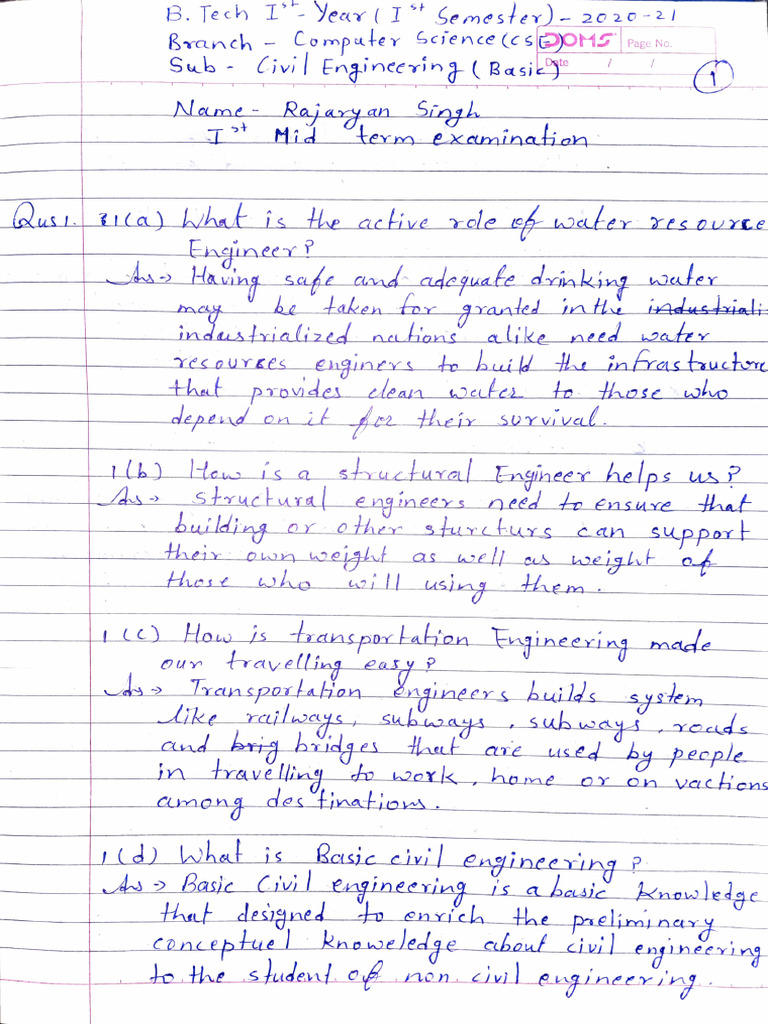 B. Tech Ist - Year ( Ist Semester) - 2020-21
Branch - Computer Science (CSE) DOMS Page No.
Sub - Civil Engineering ( Basic) Date / /
1
Name - Rajaryan Singh
Ist Mid term examination
Qus1. 1(a) What is the active role of water resource
Engineer?
Ans → Having safe and adequate drinking water
may be taken for granted in the industriali
industrialized nations alike need water
resources enginers to build the infrastructure
that provides clean water to those who
depend on it for their survival.
1(b) How is a structural Engineer helps us?
Ans → structural engineers need to ensure that
building or other sturcturs can support
their own weight as well as weight of
those who will using them.
1(c) How is transportation Engineering made
our travelling easy?
Ans → Transportation engineers builds system
like railways, subways, subways, roads
and brig bridges that are used by people
in travelling to work, home or on vactions
among destinations.
1(d) What is Basic civil engineering?
Ans → Basic Civil engineering is a basic knowledge
that designed to enrich the preliminary
conceptuel knoweledge about civil engineering
to the student of non civil engineering.